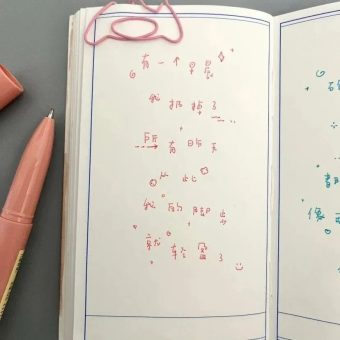 有一个早晨
我扔掉了
所有昨天
从此
我的脚步
就轻盈了